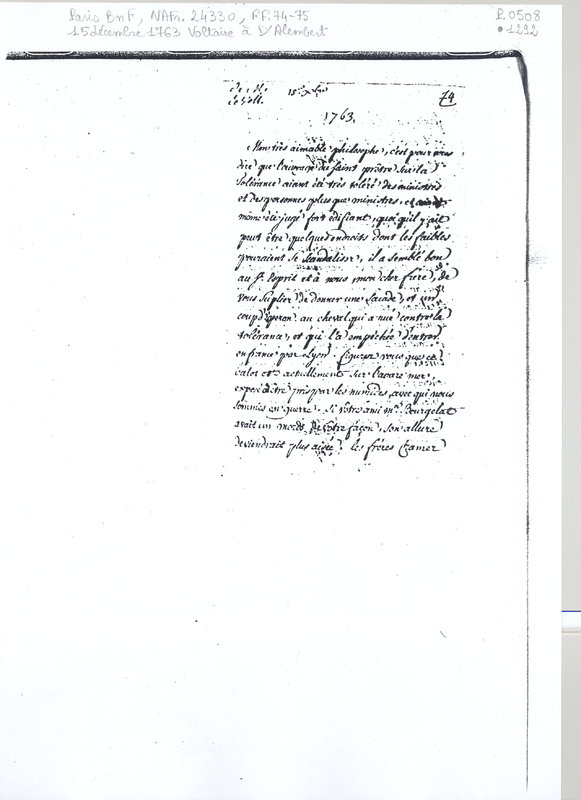 Paris BnF, NAFr. 24330, FF. 74-75
15 décembre 1763 Voltaire à D'Alembert
P. 0508
• 1292
de M.
de Voll.
15e xbre
74
1763.
Mon très aimable philosophe, c'est pour vous
dire que l'ouvrage du saint prêtre sur la
Tolérance aiant été très toléré des ministres
et des personnes plus que ministres, et aiant
même été jugé fort édifiant, quoi qu'il y ait
peut être quelques endroits dont les faibles
pouraient se scandaliser, il a semblé bon
au st. Esprit et à nous, mon cher frère, de
vous suplier de donner une saccade, et un
coup d'éperon au cheval qui a rué contre la
tolérance, et qui l'a empêchée d'entrer
en france par Lyon. figurez vous que ce
balot est actuellement sur l'avare mer,
exposé à être pris par les numides, avec qui nous
sommes en guerre. Si votre ami mr. Bourgelat
avait un mords de vôtre façon, son allure
deviendrait plus aisée. les frères Cramer